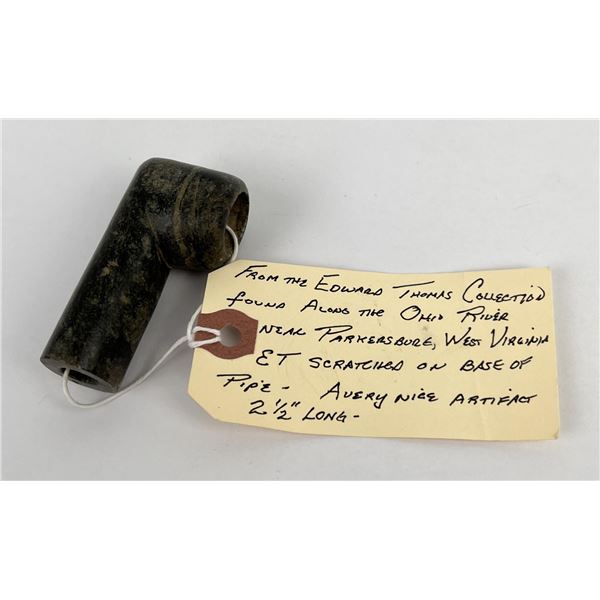 FROM THE EDWARD THOMAS COLLECTION
FOUND ALONG THE OHIO RIVER
NEAR PARKERSBURG, WEST VIRGINIA
ET SCRATCHED ON BASE OF
PIPE - A VERY NICE ARTIFACT
2 1/2" LONG -